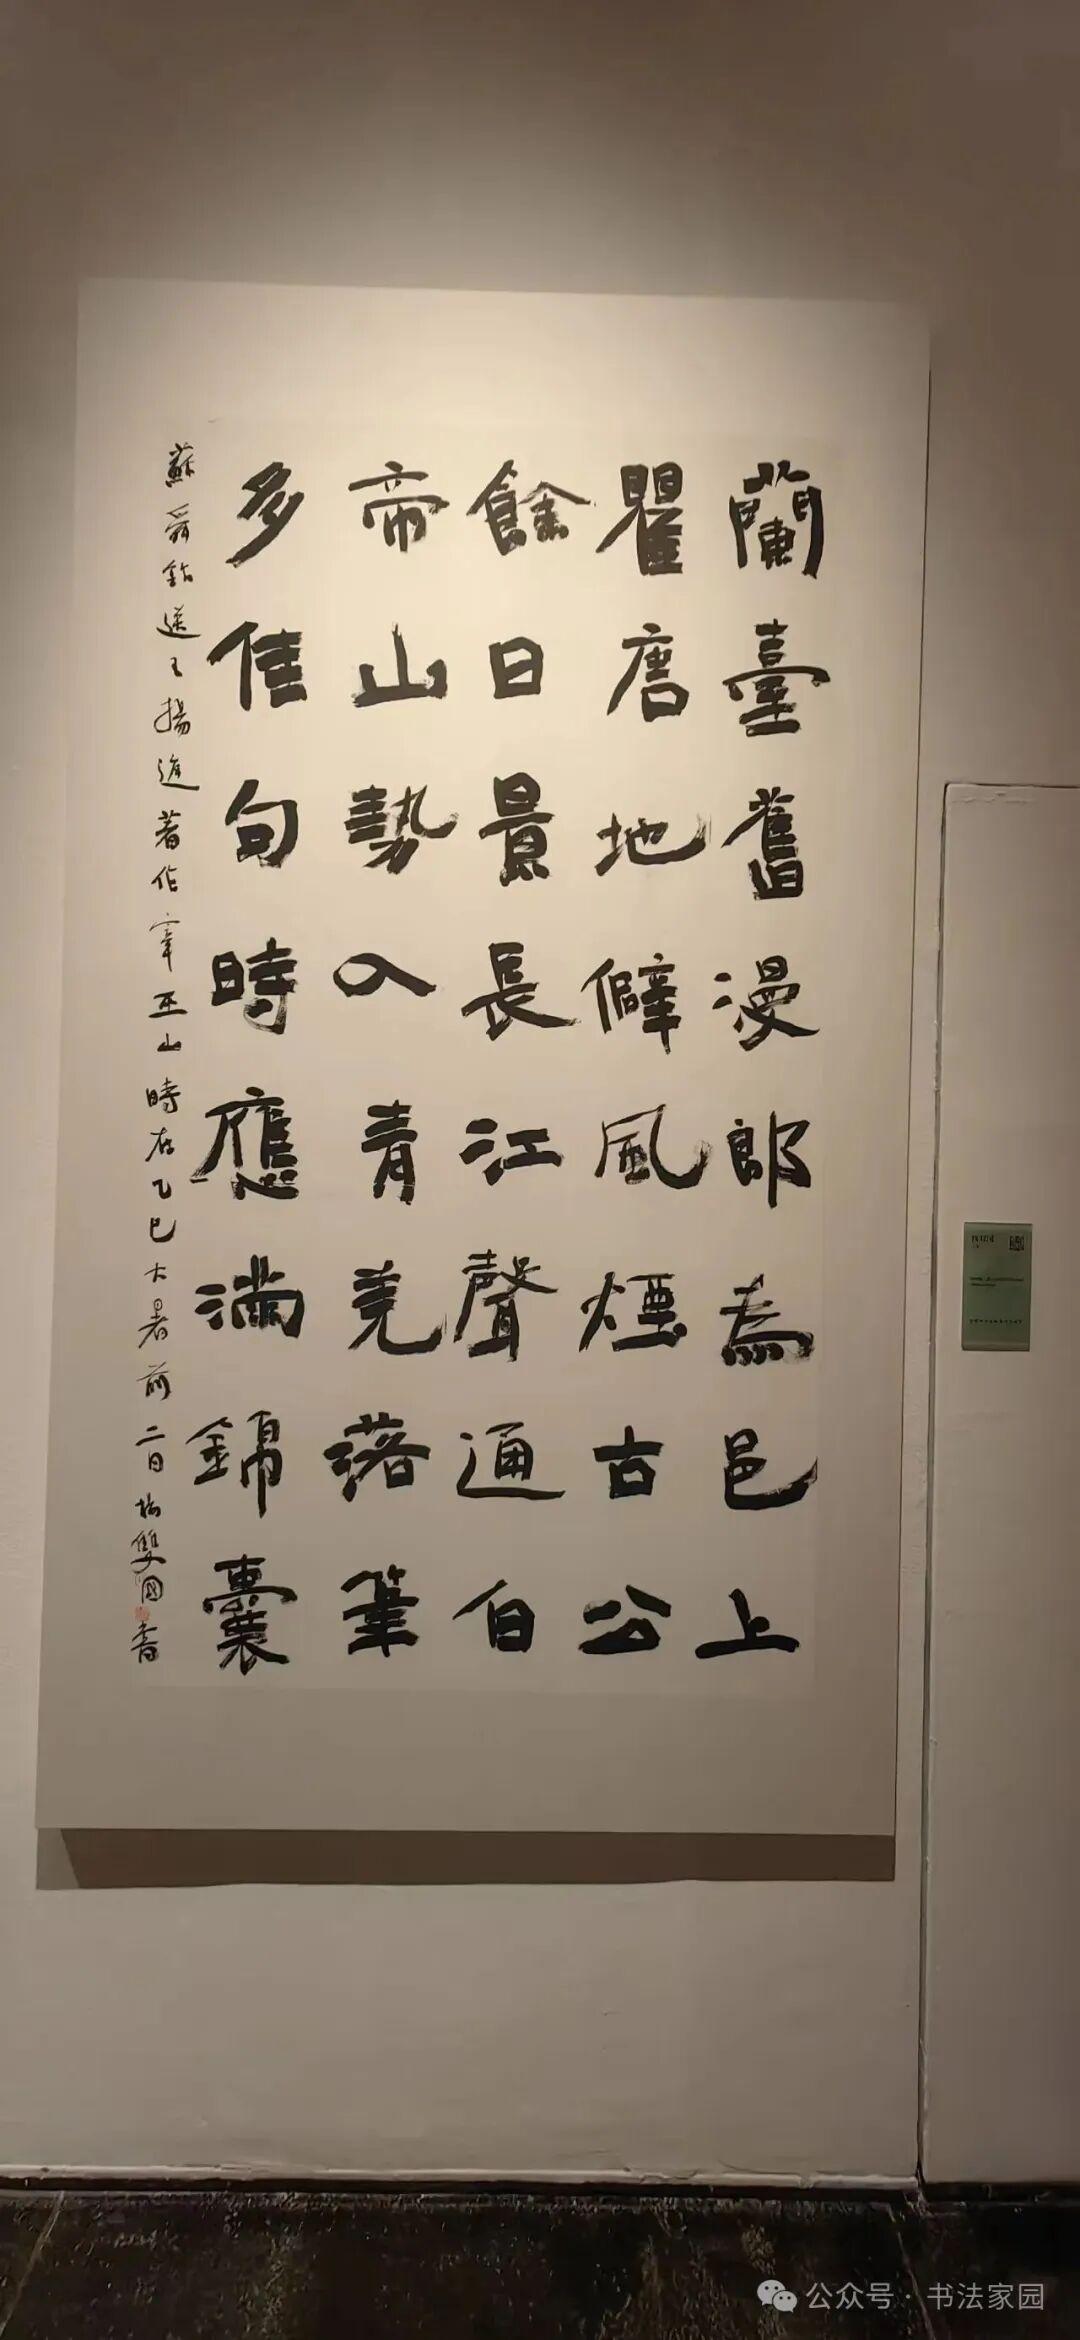 蘭臺舊漫郎為邑上
瞿唐地僻風煙古公
餘日景長江聲通白
帝山勢入青羌落筆
多佳句時應滿錦囊
蘇舜欽送王揚進著作宰巫山時在乙巳大暑前二日梅雙國書
公众号·书法家园